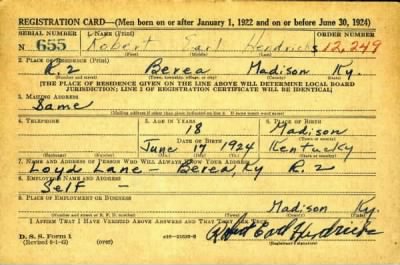 REGISTRATION CARD—(Men born on or after January 1, 1922 and on or before June 30, 1924)
SERIAL NUMBER 1. NAME (Print) ORDER NUMBER
N 655 Robert Earl Hendricks 12,249
(First) (Middle) (Last)
2. PLACE OF RESIDENCE (Print)
R.2 Berea Madison Ky.
(Number and street) (Town, township, village, or city) (County) (State)
[THE PLACE OF RESIDENCE GIVEN ON THE LINE ABOVE WILL DETERMINE LOCAL BOARD
JURISDICTION; LINE 2 OF REGISTRATION CERTIFICATE WILL BE IDENTICAL]
3. MAILING ADDRESS
Same
[Mailing address if other than place indicated on line 2. If same insert word same]
4. TELEPHONE 5. AGE IN YEARS 6. PLACE OF BIRTH
18 Madison
DATE OF BIRTH
June 17 1924 Kentucky
7. NAME AND ADDRESS OF PERSON WHO WILL ALWAYS KNOW YOUR ADDRESS
Loyd Lane - Berea, Ky R.2
8. EMPLOYER'S NAME AND ADDRESS
Self -
9. PLACE OF EMPLOYMENT OR BUSINESS
Madison Ky.
(Number and street or R. F. D. number) (Town) (County) (State)
I AFFIRM THAT I HAVE VERIFIED ABOVE ANSWERS AND THAT THEY ARE TRUE.
D. S. S. Form 1
(Revised 6-1-42) (over) Robert Earl Hendricks
(Registrant's signature)